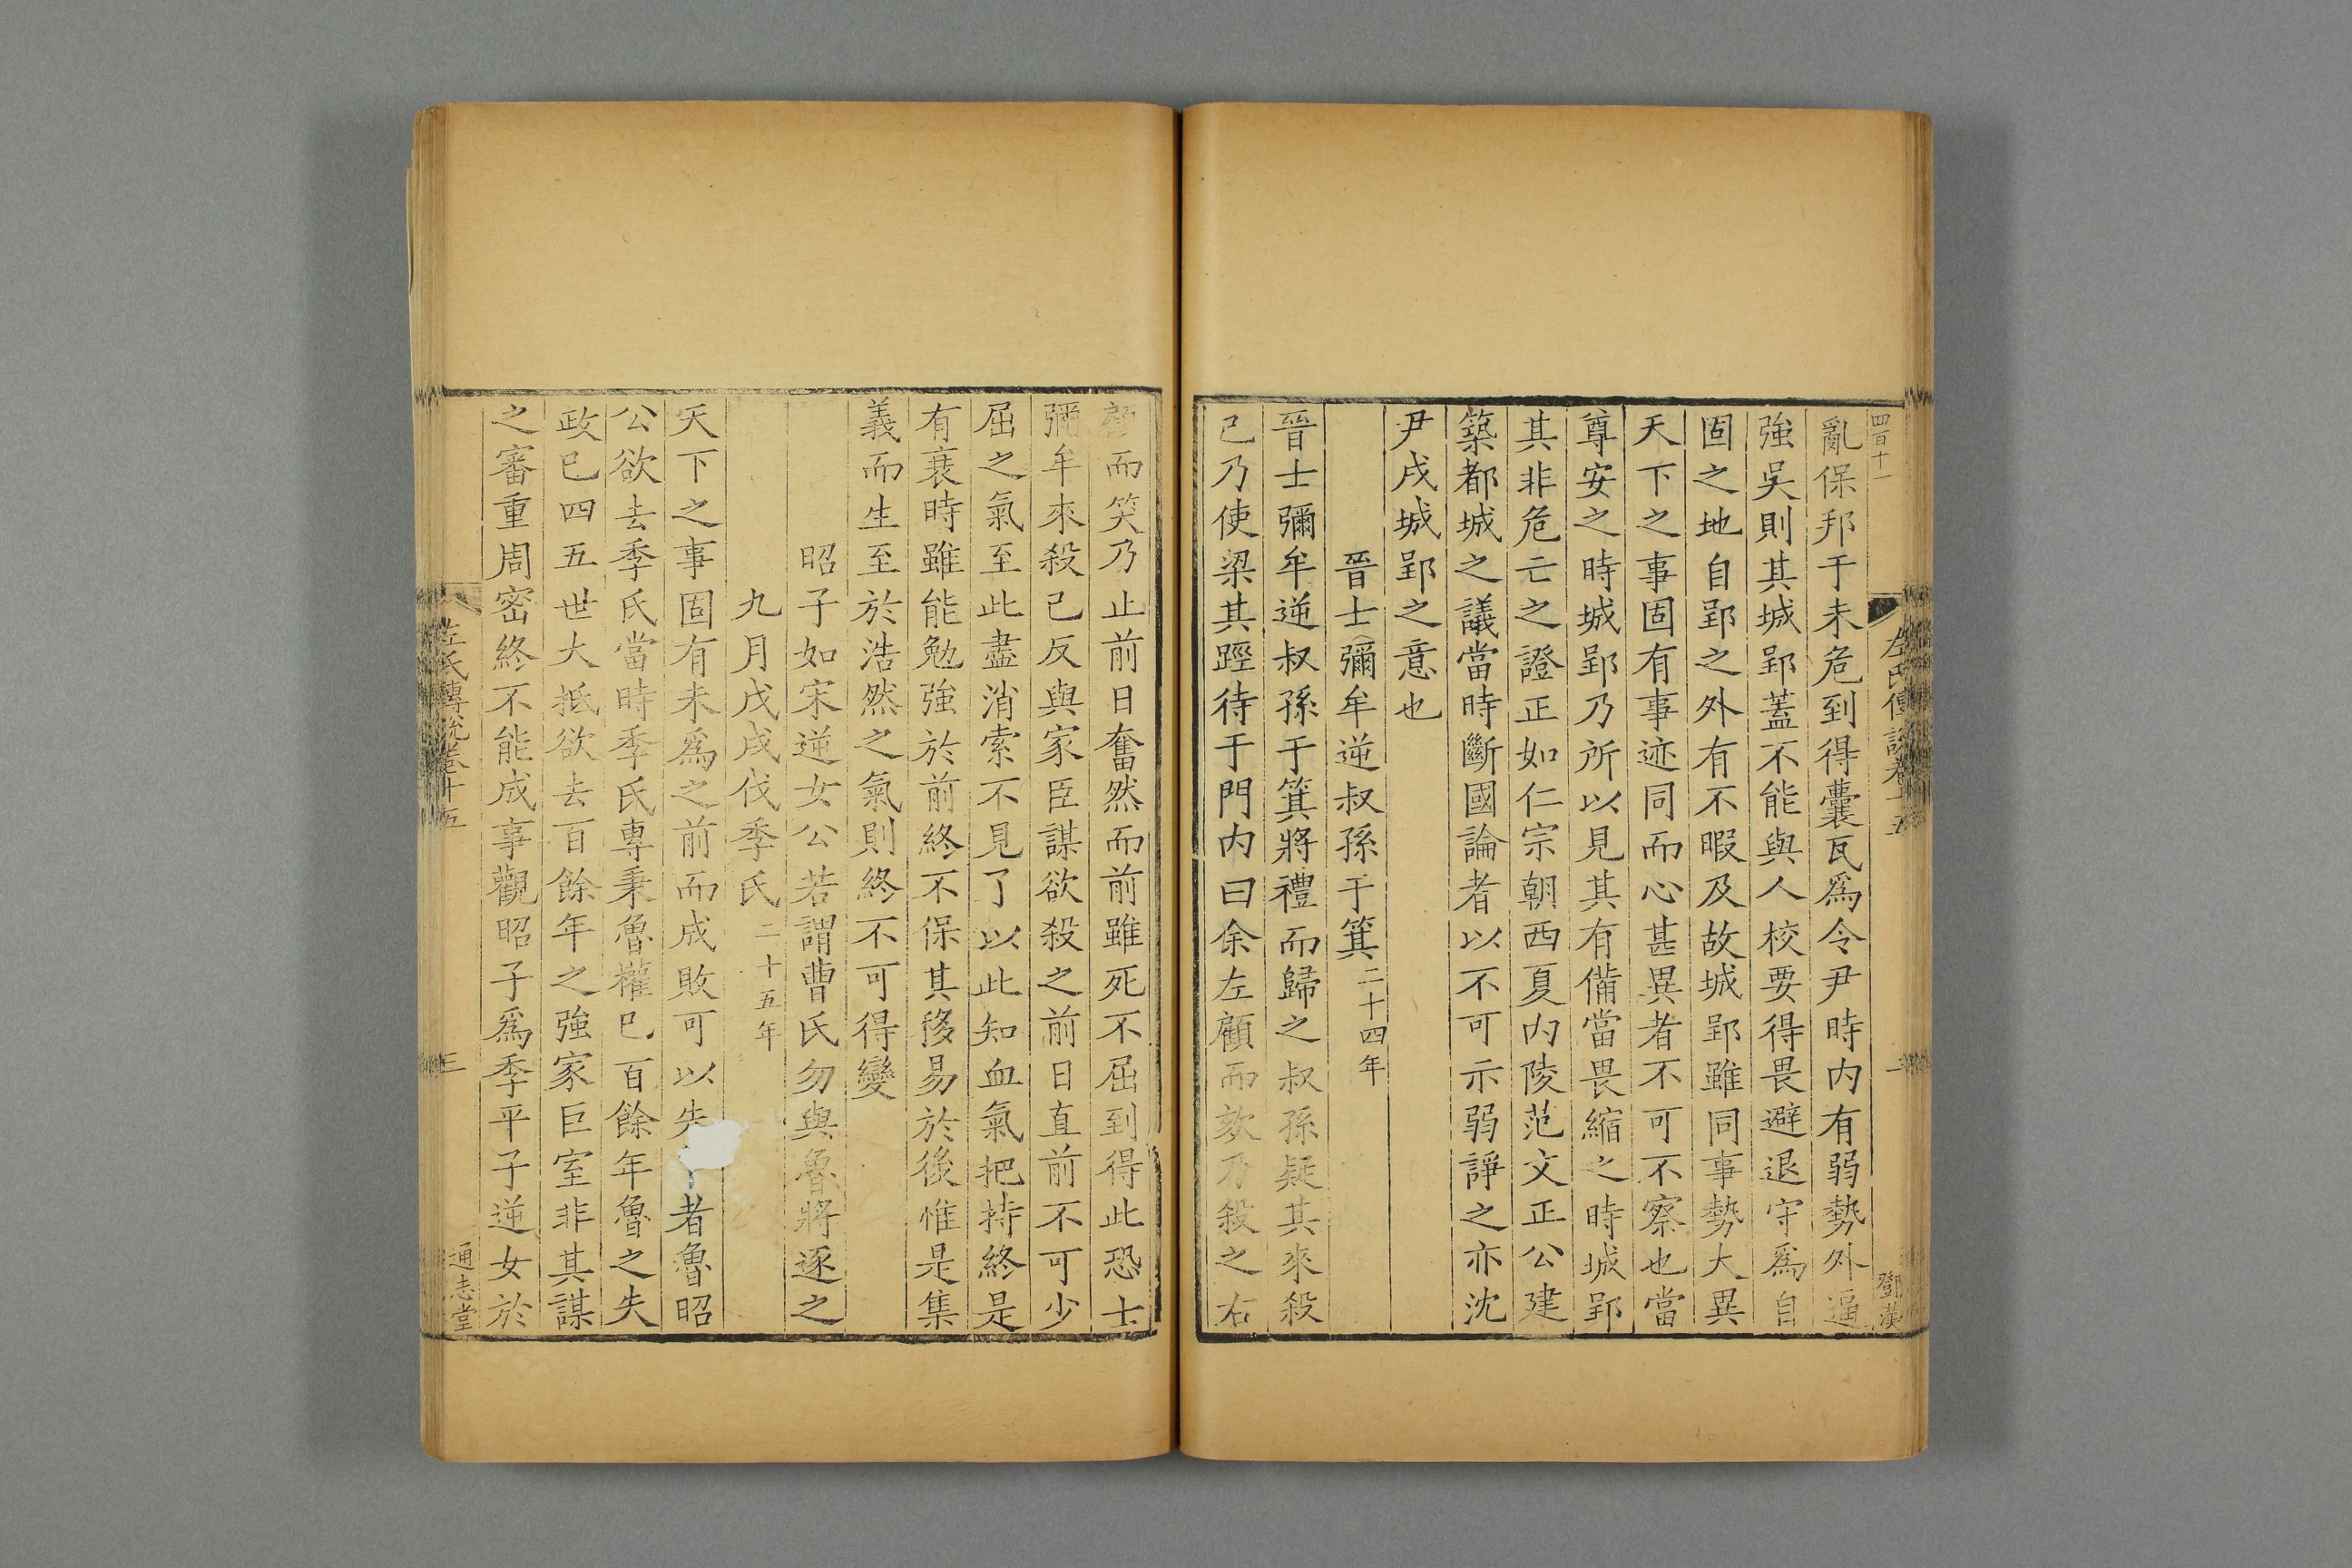 四百十一
左氏傳說卷十五
鄧漢
亂保邦于未危到得囊瓦爲令尹時内有弱勢外逼
強吳則其城郢蓋不能與人校要得畏避退守爲自
固之地自郢之外有不暇及故城郢雖同事勢大異
天下之事固有事迹同而心甚異者不可不察也當
尊安之時城郢乃所以見其有備當畏縮之時城郢
其非危亡之證正如仁宗朝西夏内陵范文正公建
築都城之議當時斷國論者以不可示弱諍之亦沈
尹戌城郢之意也
晉士彌牟逆叔孫于箕二十四年
晉士彌牟逆叔孫于箕將禮而歸之叔孫疑其來殺
己乃使梁其踁待于門内曰余左顧而欬乃殺之右
顧而笑乃止前日奮然而前雖死不屈到得此恐士
彌牟來殺己反與家臣謀欲殺之前日直前不可少
屈之氣至此盡消索不見了以此知血氣把持終是
有衰時雖能勉強於前終不保其移易於後惟是集
義而生至於浩然之氣則終不可得變
昭子如宋逆女公若謂曹氏勿與魯將逐之
九月戊戌伐季氏二十五年
天下之事固有未爲之前而成敗可以先者魯昭
公欲去季氏當時季氏專秉魯權已百餘年魯之失
政已四五世大抵欲去百餘年之強家巨室非其謀
之審重周密終不能成事觀昭子爲季平子逆女於
左氏傳說卷十五
三
通志堂